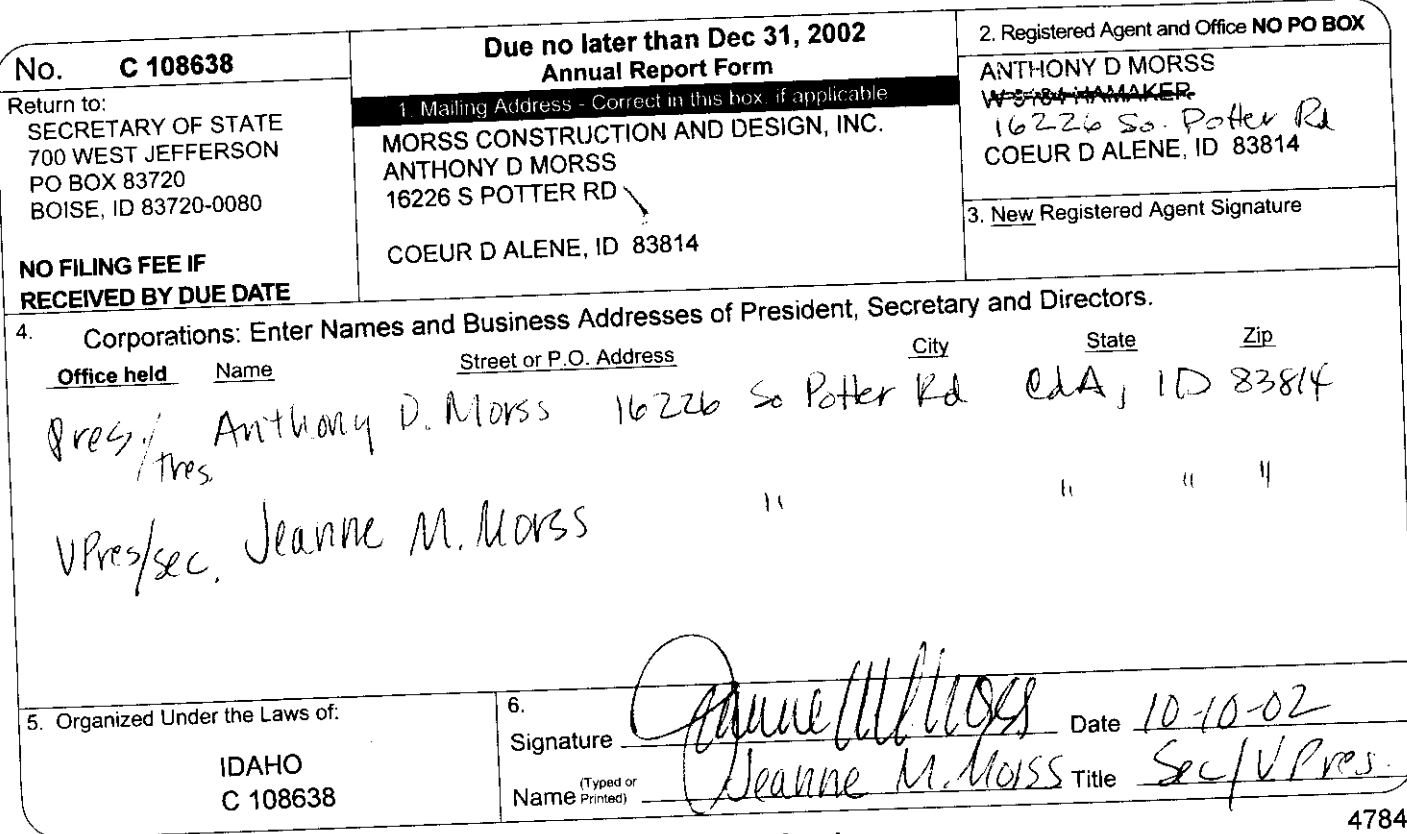 No. C 108638
Return to:
SECRETARY OF STATE
700 WEST JEFFERSON
PO BOX 83720
BOISE, ID 83720-0080
NO FILING FEE IF
RECEIVED BY DUE DATE
Due no later than Dec 31, 2002
Annual Report Form
1. Mailing Address - Correct in this box, if applicable
MORSS CONSTRUCTION AND DESIGN, INC.
ANTHONY D MORSS
16226 S POTTER RD
COEUR D ALENE, ID 83814
2. Registered Agent and Office NO PO BOX
ANTHONY D MORSS
HAMAKER
16226 So. Potter Rd
COEUR D ALENE, ID 83814
3. New Registered Agent Signature
4. Corporations: Enter Names and Business Addresses of President, Secretary and Directors.
Office held Name Street or P.O. Address City State Zip
Pres./ Anthony D. Morss 16226 So Potter Rd CdA, ID 83814
Tres.
VPres/sec. Jeanne M. Morss " " " "
5. Organized Under the Laws of:
IDAHO
C 108638
6.
Signature Jeanne M Morss Date 10-10-02
Name (Typed or Printed) Jeanne M. Morss Title Sec/V Pres.
4784